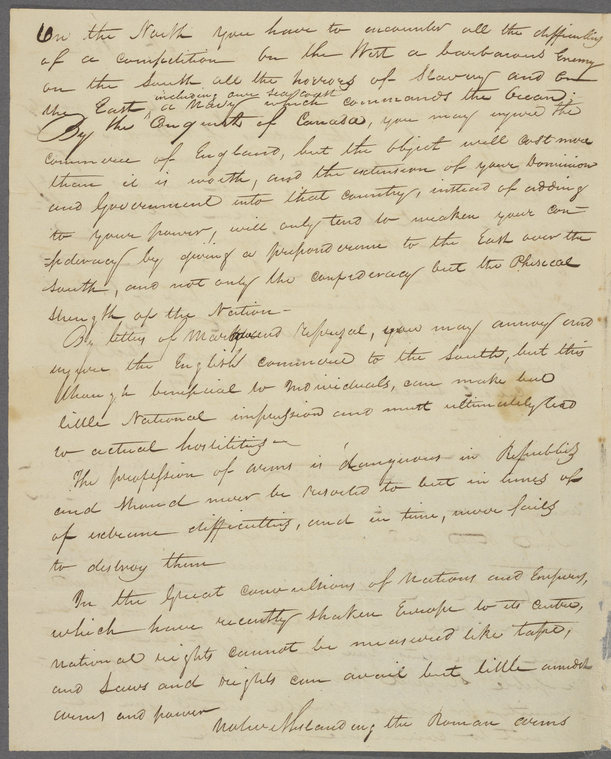 On the North you have to encounter all the difficulties
of a competition on the West a barbarous Enemy
on the South all the horrors of Slavery and on
including our sea coast
the East, a Navy which commands the Ocean.
By the Conquest of Canada, you may injure the
commerce of England, but the object will cost more
than it is worth, and the extension of your Dominion
and Government into that country, instead of adding
to your power, will only tend to weaken your con-
federacy by giving a preponderance to the East over the
South, and not only the confederacy but the Phisical
strength of the Nation-
By letters of Marque and reprisal, you may annoy and
injure the English commerce to the South, but this
though beneficial to Individuals, can make but
little National impression and must ultimately lead
to actual hostilities-
The profession of arms is dangerous in Republics
and should never be resorted to but in times of
of extreme difficulties, and in time, never fails
to destroy them
In the Great convulsions of Nations and Empires,
which have recently shaken Europe to its centre,
National rights cannot be measured like tape;
and Laws and rights can avail but little amidst
arms and power
Notwithstanding the Roman arms